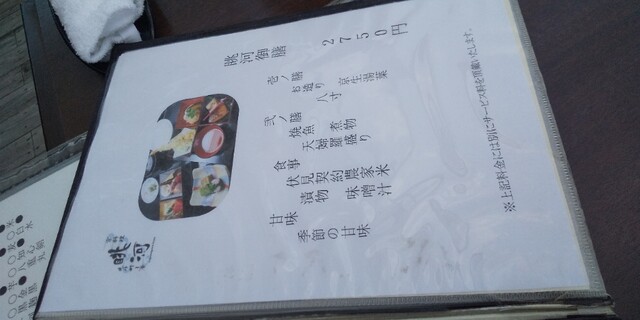 眺河御膳 2750円
壱ノ膳
お造り 京生湯葉
八寸
弐ノ膳
焼魚 煮物
天婦羅盛り
食事
伏見契約農家米
漬物 味噌汁
甘味
季節の甘味
※上記料金には別にサービス料を頂戴いたします。
眺河